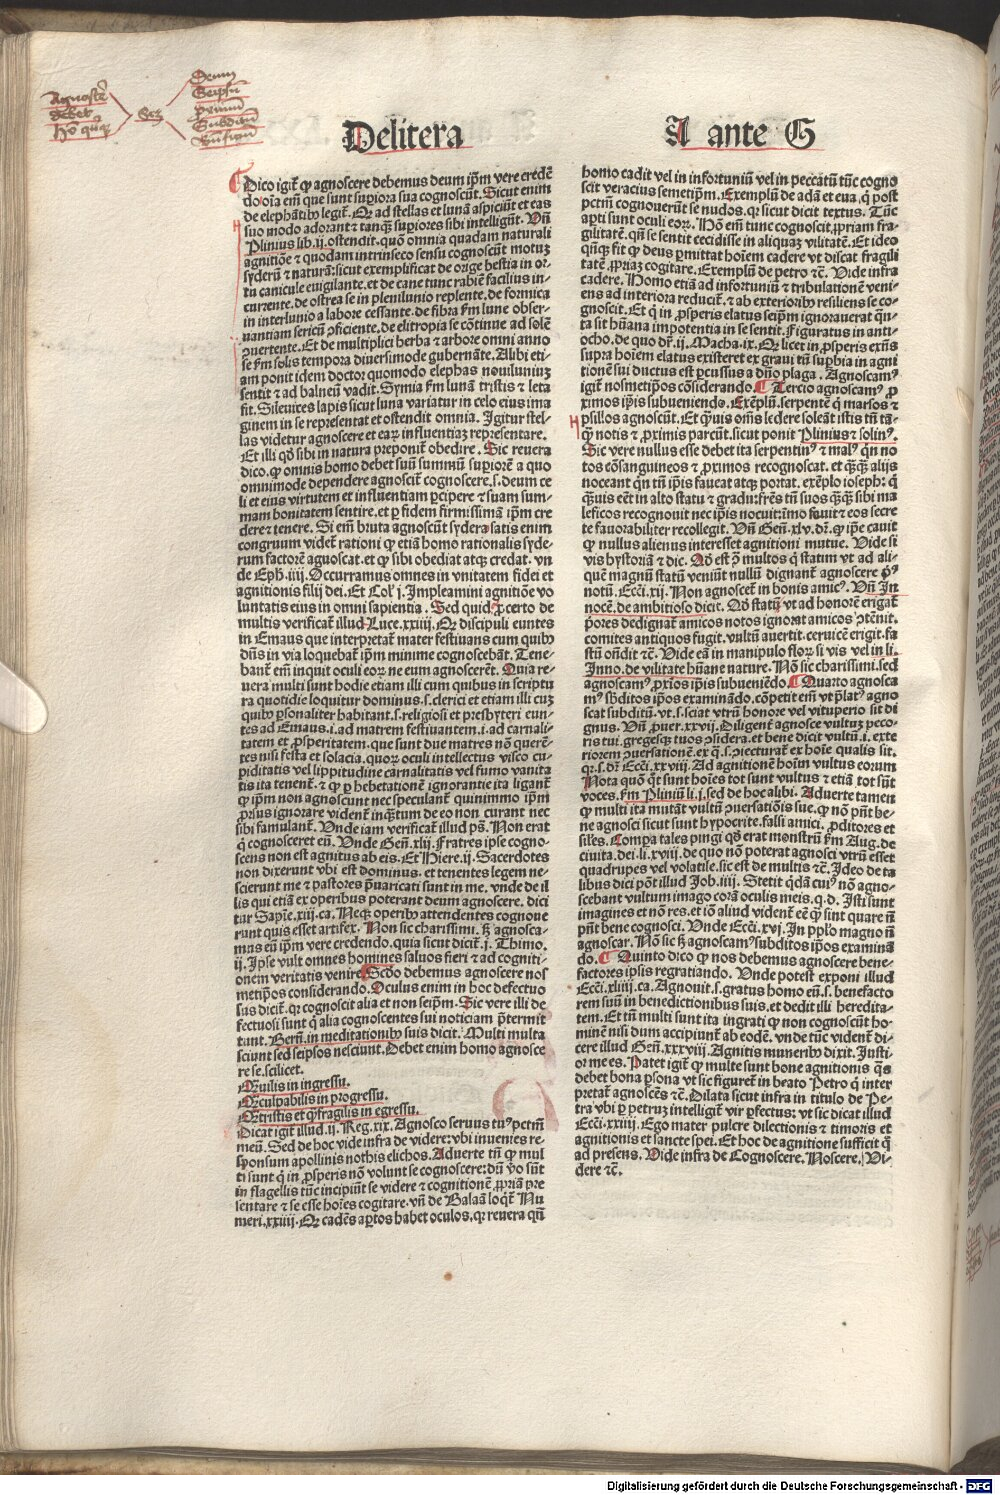 Agnoscere
debet
homo quinque
Scz
Deum
Seipsum
proximum
Subditum
Delitera A ante G
Dico igit̄ ꝙ agnoscere debemus deum ip̄m vere credē
do. oīa em̄ que sunt supiora sua cognoscūt. Sicut enim
de elephātibꝰ legit̄. Qꝛ ad stellas et lunā aspiciūt et eas
suo modo adorant ⁊ tanqꝫ supiores sibi intelligūt. Vn̄
Plinius lib. ij. ostendit. quō omnia quadam naturali
agnitiōe ⁊ quodam intrinseco sensu cognoscūt motus
syderū ⁊ naturā: sicut exemplificat de orige bestia in or-
tu canicule euigilante. et de cane tunc rabiē facilius in-
currente. de ostrea se in plenilunio replente. de formica
in interlunio a labore cessante. de fibra fm̄ lune obser-
uantiam sericū ꝯficiente. de elitropia se cōtinue ad solē
ꝯuertente. Et de multiplici herba ⁊ arbore omni anno
se fm̄ solis tempora diuersimode gubernāte. Alibi eti-
am ponit idem doctor quomodo elephas nouilunium
sentit ⁊ ad balneū vadit. Symia fm̄ lunā tristis ⁊ leta
fit. Silenites lapis sicut luna variatur in celo eius ima
ginem in se representat et ostendit omnia. Igitur stel-
las videtur agnoscere et eaꝝ influentiaꝫ representare.
Et illi qd̄ sibi in natura preponit̄ obedire. Sic reuera
dico. ꝙ omnis homo debet suū summū supiorē a quo
omnimode dependere agnoscit̄ cognoscere. s. deum ce
li et eius virtutem et influentiam ꝑcipere ⁊ suam sum-
mam bonitatem sentire. et ꝑ fidem firmissimā ip̄m cre
dere ⁊ tenere. Si em̄ bruta agnoscūt sydera satis enim
congruum videt̄ rationi ꝙ etiā homo rationalis syde-
rum factorē aguoscat. et ꝙ sibi obediat atqꝫ credat. vn
de Eph. iiij. Occurramus omnes in vnitatem fidei et
agnitionis filij dei. Et Col̄. j. Impleamini agnitiōe vo
luntatis eius in omni sapientia. Sed quid. ꝓ certo de
multis verificat̄ illud Luce. xxiiij. Qꝛ discipuli euntes
in Emaus que interpretat̄ mater festiuans cum quibꝰ
dn̄s in via loquebat̄ ip̄m minime cognoscebāt. Tene-
bant̄ em̄ inquit oculi eoꝝ ne eum agnoscerēt. Quia re-
uera multi sunt hodie etiam illi cum quibus in scriptu
ra quotidie loquitur dominus. s. clerici et etiam illi cuꝫ
quibꝰ ꝑsonaliter habitant. s. religiosi et presbyteri eun-
tes ad Emaus. i. ad matrem festiuantem. i. ad carnali-
tatem et ꝓsperitatem. que sunt due matres nō querē-
tes nisi festa et solacia. quoꝝ oculi intellectus visco cu-
piditatis vel lippitudine carnalitatis vel fumo vanita
tis ita tenent̄. ⁊ ꝙ ꝑ hebetationē ignorantie ita ligant̄
ꝙ ip̄m non agnoscunt nec speculant̄ quinimmo ip̄m
ꝓrsus ignorare vident̄ inqn̄tum de eo non curant nec
sibi famulant̄. Unde iam verificat̄ illud ps̄. Non erat
ꝗ cognosceret eū. Unde Gen̄. xlij. Fratres ipse cogno-
scens non est agnitus ab eis. Et Hiere. ij. Sacerdotes
non dixerunt vbi est dominus. et tenentes legem ne-
scierunt me ⁊ pastores p̄uaricati sunt in me. vnde de il
lis qui etiā ex operibus poterant deum agnoscere. dici
tur Sapīe. xiij. ca. Neqꝫ operibꝰ attendentes cognoue
runt quis esset artifex. Non sic charissimi. sꝫ agnosca-
mus eū ip̄m vere credendo. quia sicut dicit̄. j. Thimo.
ij. Ipse vult omnes homines saluos fieri ⁊ ad cogniti-
onem veritatis venire. Scd̄o debemus agnoscere nos
metip̄os considerando. Oculus enim in hoc defectuo
sus dicit̄. qꝛ cognoscit alia et non seip̄m. Sic vere illi de
fectuosi sunt ꝗ alia cognoscentes sui noticiam p̄termit
tunt. Bern̄. in meditationibꝰ suis dicit. Multi multa
sciunt sed seipsos nesciunt. Debet enim homo agnosce
re se. scilicet.
Qꝛ vilis in ingressu.
Qꝛ culpabilis in progressu.
Qꝛ tristis et q̄ fragilis in egressu.
Dicat igit̄ illud. ij. Reg. xix. Agnosco seruus tuꝰ pctm̄
meū. Sed de hoc vide infra de videre. vbi inuenies re-
sponsum apollinis nothis elichos. Aduerte tn̄ ꝙ mul
ti sunt ꝗ in ꝓsperis nō volunt se cognoscere: dū v̄o sūt
in flagellis tūc incipiūt se videre ⁊ cognitionē ꝓpriā pre
sentare ⁊ se esse hoīes cogitare. vn̄ de Balaā loqt̄ Nu
meri. xxiiij. Qꝛ cadēs aꝑtos habet oculos. qꝛ reuera qn̄
homo cadit vel in infortuniū vel in peccatū tūc cogno
scit veracius semetip̄m. Exemplū de adā et eua. ꝗ post
pctm̄ cognouerūt se nudos. qꝛ sicut dicit textus. Tūc
apti sunt oculi eoꝝ. Hō em̄ tunc cognoscit ꝓpriam fra-
gilitatē. qn̄ se sentit cecidisse in aliquaꝫ vilitatē. Et ideo
qn̄qꝫ fit ꝙ deus ꝑmittat hoīem cadere vt discat fragili
tatē ꝓpriaꝫ cogitare. Exemplū de petro ⁊c̄. Vide infra
cadere. Homo etiā ad infortuniū ⁊ tribulationē veni-
ens ad interiora reducit̄. ⁊ ab exterioribꝰ resiliens se co-
gnoscit. Et ꝗ in ꝓsperis elatus seip̄m ignorauerat qn̄-
ta sit hūana impotentia in se sentit. Figuratus in anti-
ocho. de quo dr̄. ij. Macha. ix. Qꝛ licet in ꝓsperis exn̄s
supra hoīem elatus existeret ex graui tn̄ supbia in agni
tionē sui ductus est ꝑcussus a dn̄o plaga. Agnoscamꝰ
igit̄ nosmetip̄os cōsiderando. Tercio agnoscamꝰ ꝓ
ximos ip̄is subueniendo. Exēplū. serpentē ꝗ marsos ⁊
psillos agnoscūt. Et qͣuis om̄s ledere soleāt istis tn̄ tā-
qͣ notis ⁊ ꝓximis parcūt. sicut ponit Plinius ⁊ solinꝰ.
Sic vere nullus esse debet ita serpentinꝰ ⁊ malꝰ qn̄ no
tos cōsanguineos ⁊ ꝓximos recognoscat. et qͣꝫqͣꝫ alijs
noceant qn̄ tn̄ ip̄is faueat atqꝫ portat. exēplo ioseph: ꝗ
qͣꝫuis eēt in alto statu ⁊ gradu: frēs tn̄ suos qͣꝫqͣꝫ sibi ma
leficos recognouit nec ip̄is nocuit: īmo fouit ⁊ eos secre
te fauorabiliter recollegit. Vn̄ Gen̄. xlv. dr̄. ꝙ ip̄e cauit
ꝙ nullus alienus interesset agnitioni mutue. Vide si
vis hystoriā ⁊ dic. Ad̄ est ꝯ multos ꝗ statim vt ad ali-
quē magnū statū veniūt nullū dignant̄ agnoscere pͥꝰ
notū. Ecc̄i. xij. Non agnoscet̄ in bonis amicꝰ. Vn̄ In
nocē. de ambitioso dicit. Ad̄ statū vt ad honorē erigat̄
p̄ores dedignat̄ amicos notos ignorat amicos ꝯtēnit.
comites antiquos fugit. vultū auertit. ceruicē erigit. fa
stū on̄dit ⁊c̄. Vide eā in manipulo floꝝ si vis vel in li.
Inno. de vilitate hūane nature. Nō sic charissimi. sed
agnoscamꝰ ꝓxīos ip̄is subueniēdo. Quarto agnosca
mꝰ sb̄ditos ip̄os examinādo. cōpetit em̄ vt p̄latꝰ agno
scat subditū. vt. s. sciat vtrū honore vel vituperio sit di
gnus. Vn̄ Prouer. xxvij. Diligent̄ agnosce vultuꝫ peco-
ris tui. gregesqꝫ tuos ꝯsidera. et bene dicit vultū. i. exte
riorem ꝯuersationē. ex ꝗ. s. ꝯiecturat̄ ex hoīe qualis sit.
qꝛ. s. dr̄. Ecc̄i. xxviij. Ad agnitionē hoīm vultus eorum
Nota quō qt̄ sunt hoīes tot sunt vultus ⁊ etiā tot sūt
voces. fm̄ Pliniū li. j. sed de hoc alibi. Aduerte tamen
ꝙ multi ita mutāt vultū ꝯuersatiōis sue. ꝙ nō pn̄t be-
ne agnosci sicut sunt hypocrite. falsi amici. ꝓditores et
sil̄es. Compa tales pingi qd̄ erat monstrū fm̄ Aug. de
ciuita. dei. li. xviij. de quo nō poterat agnosci vtrū esset
quadrupes vel volatile. sic est de multis ⁊c̄. Ideo de ta
libus dici pōt illud Job. iiij. Stetit qͥdā cuiꝰ nō agno-
scebant vultum imago corā oculis meis. q. d. Isti sunt
imagines et nō res. et iō aliud vident̄ eē ꝙ sint quare nō
pn̄t bene cognosci. Unde Ecc̄i. xvj. In pp̄lo magno nō
agnoscar. Nō sic sꝫ agnoscamꝰ subditos ip̄os examinā
do. Quinto dico ꝙ nos debemus agnoscere bene-
factores ipsis regratiando. Unde potest exponi illud
Ecc̄i. xliiij. ca. Agnouit. s. gratus homo eū. s. benefacto
rem suū in benedictionibus suis. et dedit illi heredita-
tem. Et tn̄ multi sunt ita ingrati ꝙ non cognoscūt ho-
minē nisi dum accipiunt ab eodē. vnde tūc vident̄ di-
cere illud Gen̄. xxxviij. Agnitis muneribꝰ dixit. Justi-
or me es. Patet igit̄ ꝙ multe sunt bone agnitionis qͣs
debet bona ꝑsona vt sic figuret̄ in beato Petro ꝗ inter
pretat̄ agnoscēs ⁊c̄. Dilata sicut infra in titulo de Pe-
tra vbi ꝑ petruꝫ intelligit̄ vir ꝑfectus: vt sic dicat illud
Ecc̄i. xxiiij. Ego mater pulcre dilectionis ⁊ timoris et
agnitionis et sancte spei. Et hoc de agnitione sufficit ꝗ
ad presens. Vide infra de Cognoscere. Noscere. Vi-
dere ⁊c̄.
Digitalisierung gefördert durch die Deutsche Forschungsgemeinschaft - DFG